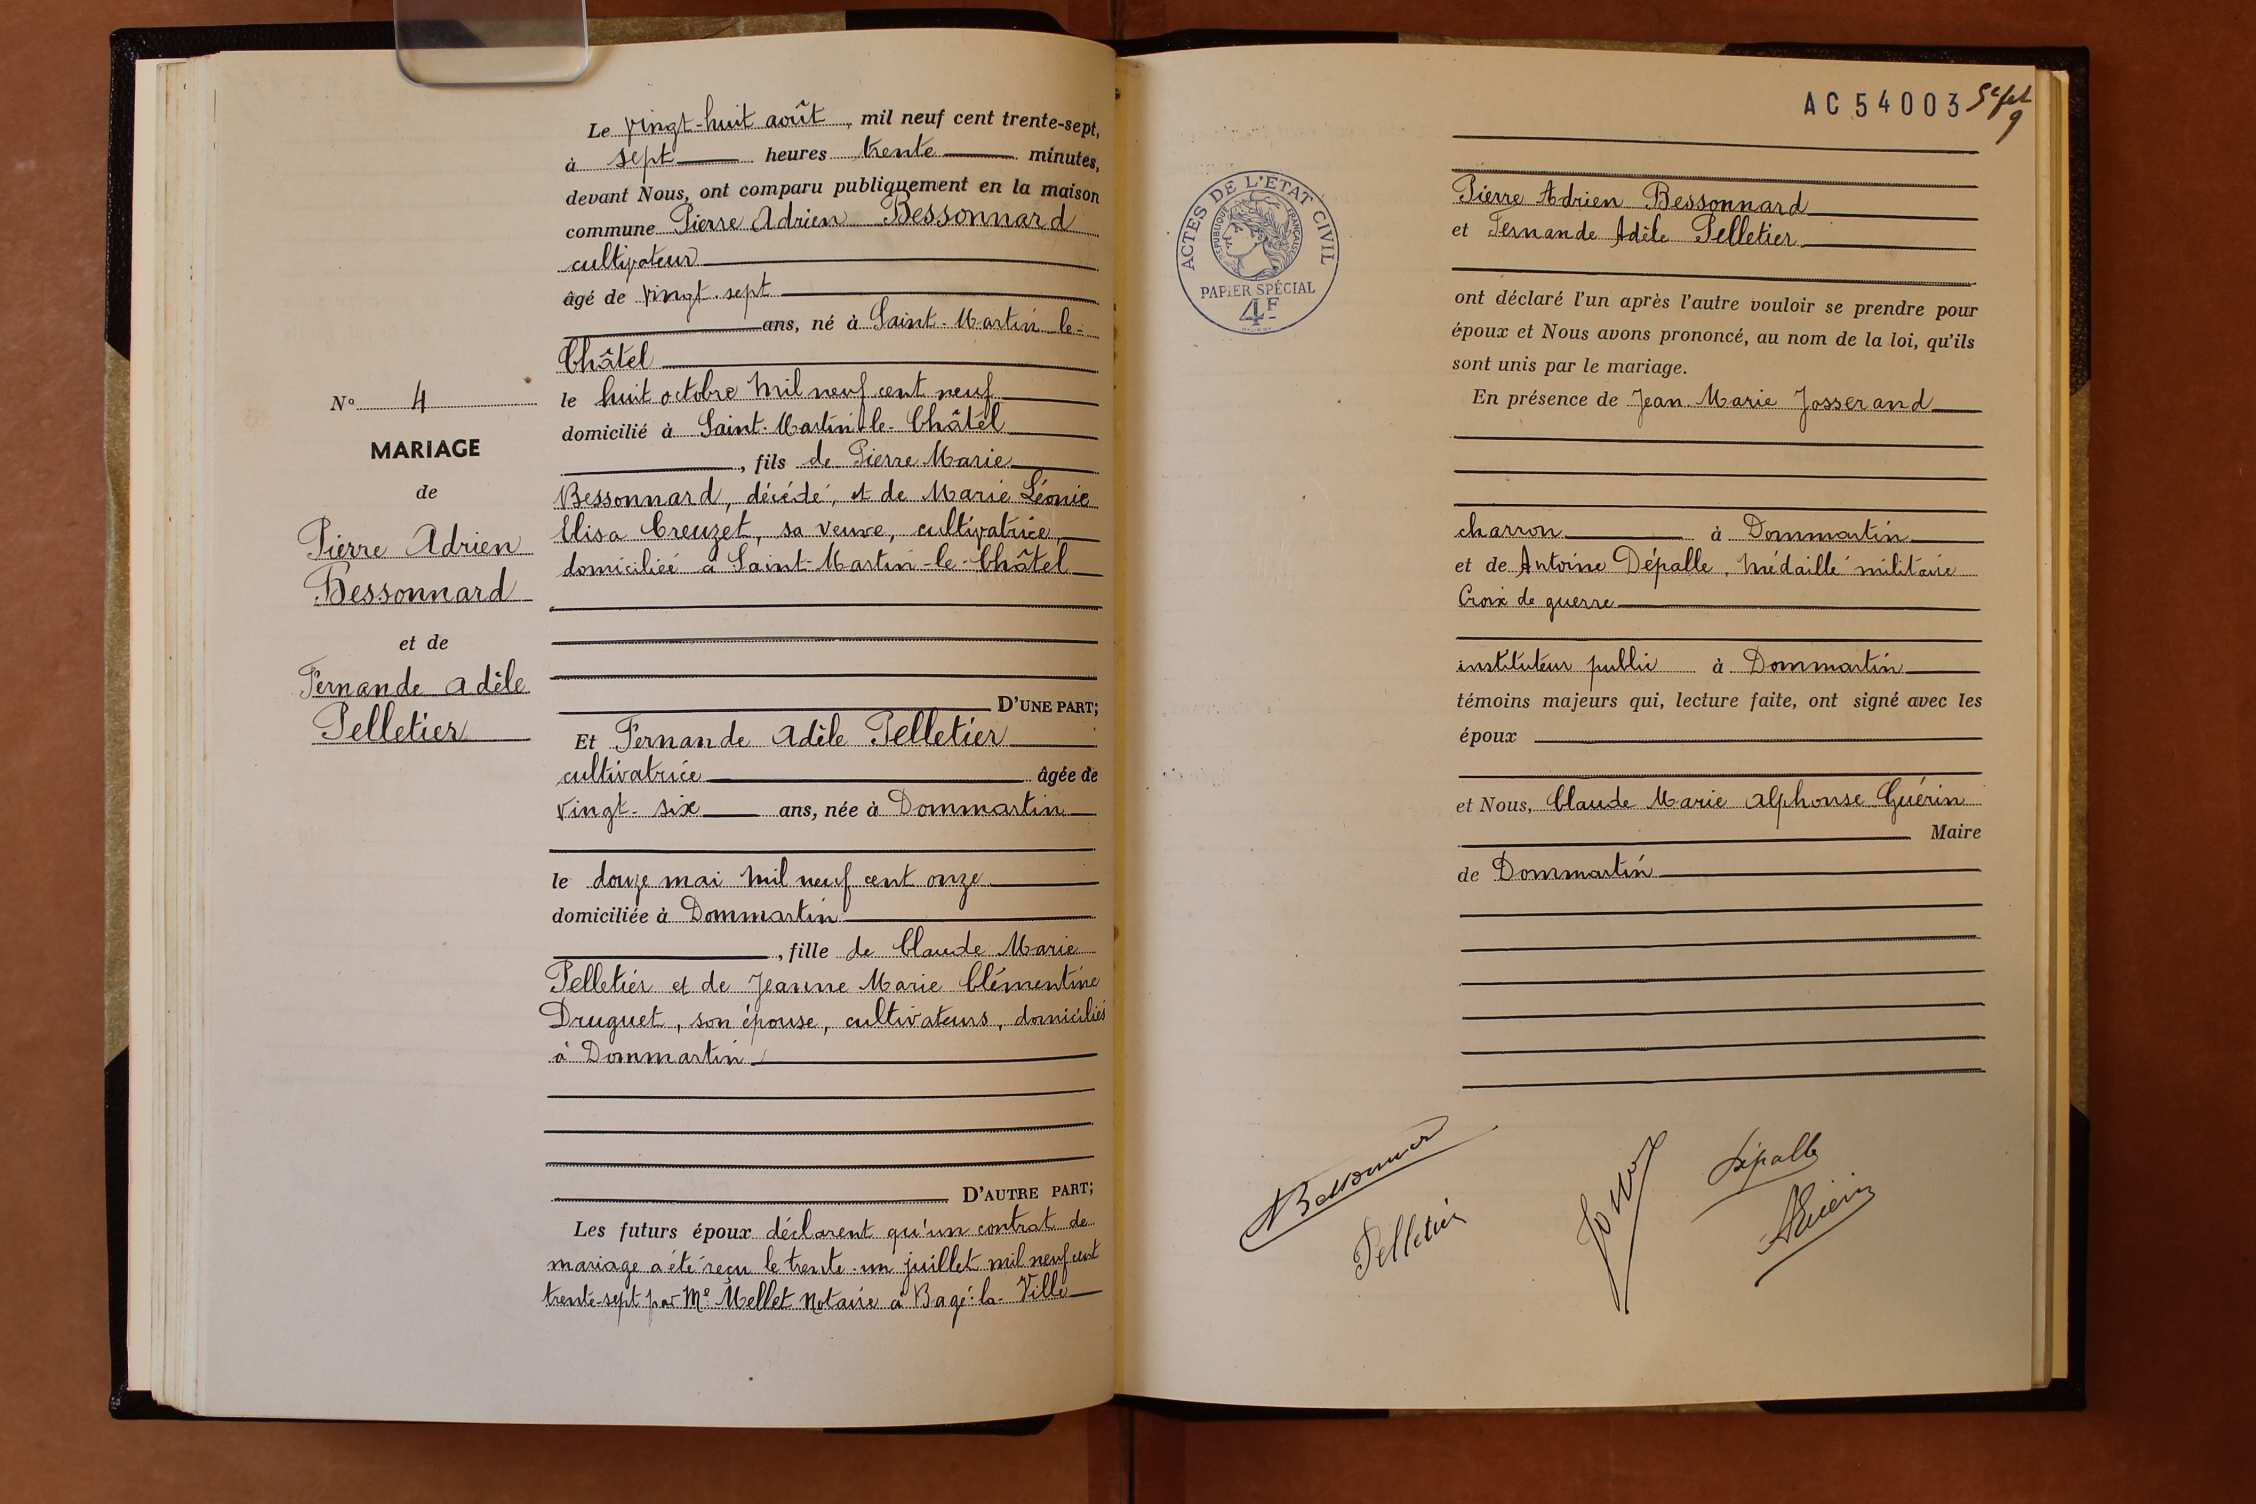 Le vingt-huit août, mil neuf cent trente-sept,
à sept heures trente minutes,
devant Nous, ont comparu publiquement en la maison
commune Pierre Adrien Bessonnard
cultivateur
âgé de vingt-sept
ans, né à Saint-Martin-le-
Châtel
le huit octobre mil neuf cent neuf
domicilié à Saint-Martin-le-Châtel
, fils de Pierre Marie
Bessonnard, décédé, et de Marie Léonie
Elisa Creuzet, sa veuve, cultivatrice,
domiciliée à Saint-Martin-le-Châtel
D'UNE PART;
Et Fernande Adèle Pelletier
cultivatrice âgée de
vingt-six ans, née à Dommartin
le douze mai mil neuf cent onze
domiciliée à Dommartin
, fille de Claude Marie
Pelletier et de Jeanne Marie Clémentine
Druguet, son épouse, cultivateurs, domiciliés
à Dommartin
D'AUTRE PART;
Les futurs époux déclarent qu'un contrat de
mariage a été reçu le trente-un juillet mil neuf cent
trente-sept par Me Mellet Notaire à Bagé-la-Ville
No 4
MARIAGE
de
Pierre Adrien
Bessonnard
et de
Fernande Adèle
Pelletier
AC 54003
9
ACTES DE L'ETAT CIVIL
REPUBLIQUE FRANÇAISE
PAPIER SPÉCIAL
4F
Pierre Adrien Bessonnard
et Fernande Adèle Pelletier
ont déclaré l'un après l'autre vouloir se prendre pour
époux et Nous avons prononcé, au nom de la loi, qu'ils
sont unis par le mariage.
En présence de Jean Marie Josserand
charron à Dommartin
et de Antoine Dépalle, médaillé militaire
Croix de guerre
instituteur public à Dommartin
témoins majeurs qui, lecture faite, ont signé avec les
époux
et Nous, Claude Marie Alphonse Guérin
Maire
de Dommartin
Bessonnard
Pelletier
Dépalle
AGuérin